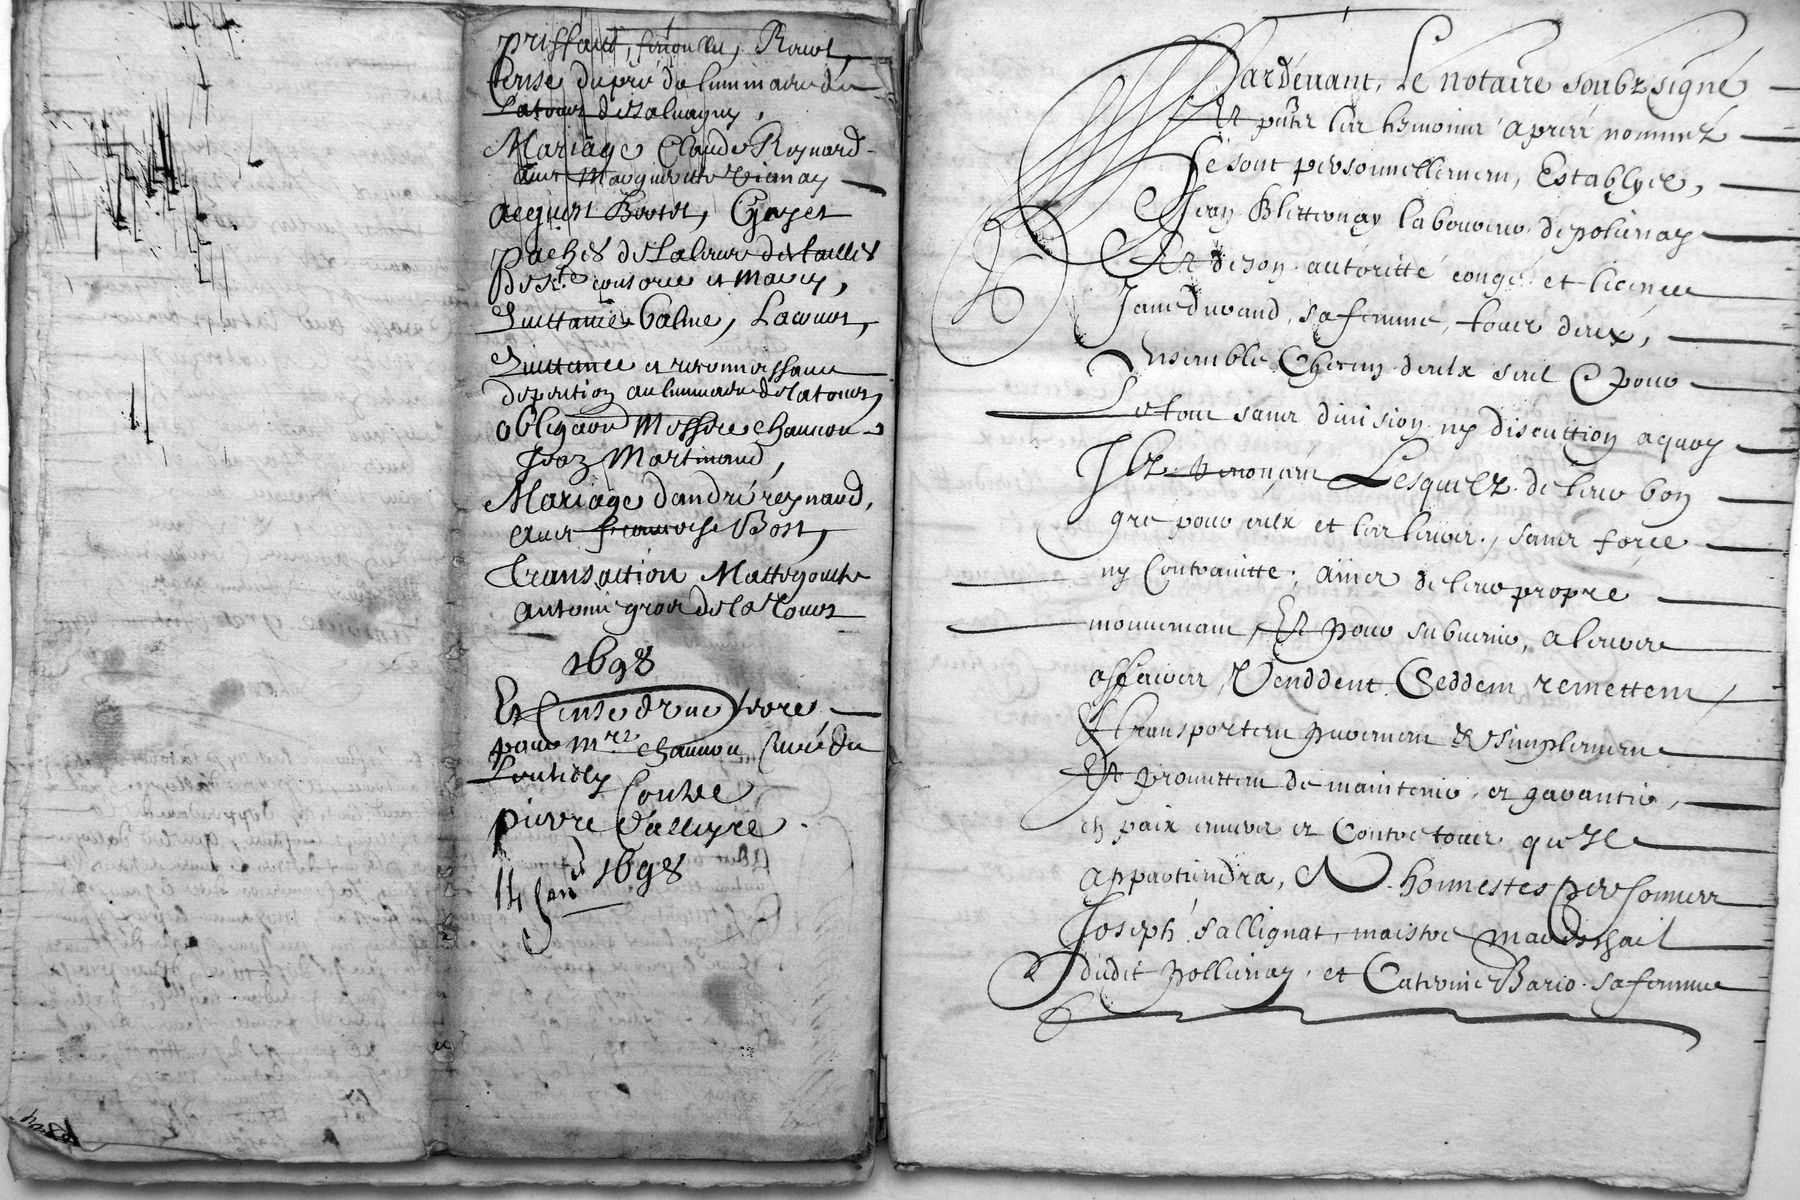 prissaud, Rouol,
Cense du pré du luminaire de
Latour de Salvagny,
Mariage Claude Reynard
avec Margueritte Vianay
acquist Bootot, Goyet
paches de la levée des tailles
de Ste consorce et marcy,
Quittance Balme, Lacour,
Quittance et reconnoissance
de pention au luminaire de la tour,
obligaon Messire chanuon
Martinaud,
Mariage d'andré reynaud,
avec francoise Bost,
Transaction Mattegouthe
antoine gros de la Tour
1698
Et Cense d'une terre
pour mre chanuon Curé du
Contre
pierre d'alleyre
14 janr 1698
Pardevant, Le notaire soubzsigné
Et pntz les themoins aprés nommez
se sont personnellement, Establyes,
Jean laboureur de polienay
Et de son autoritté congé et licence
Jane durand, sa femme, tous deux,
Ensemble Chacun d'eulx seul & pour
Le tout sans division ny discuttion a quoy
Ilz renonçent Lesquelz de leur bon
gré pour eulx et les leurs, sans force
ny Contrainte, ains de leur propre
mouvemant, Et pour subvenir, a leurs
affaires, Venddent Ceddent remettent,
Et transportent purement & simplement
Et promettent de maintenir, et garantir,
en paix envers et Contre tous qu'Il
appartiendra, A honnestes personnes
Joseph sallignat, maistre mareschail
dudit pollienay, et Caterine Bario sa femme